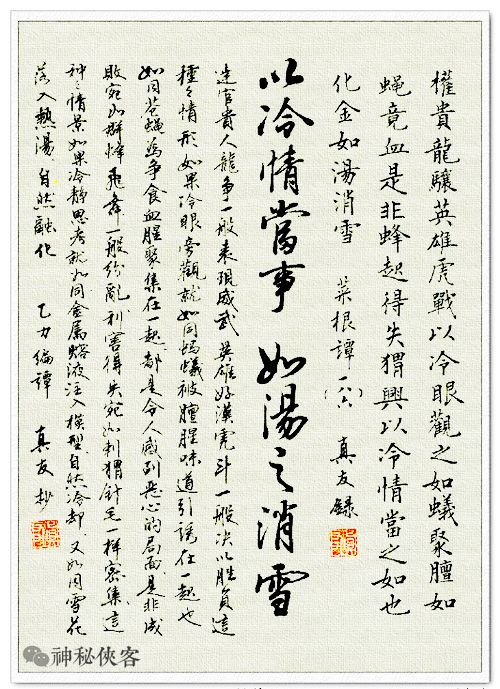 權貴龍驤英雄虎戰以冷眼觀之如蟻聚膻如
蝇竟血是非蜂起得失猬興以冷情當之如也
化金如湯消雪 菜根譚 真友錄
以冷情當事 如湯之消雪
達官貴人龍爭一般表現威武 英雄好漢虎斗一般决以胜負這
種々情形如果冷眼旁觀就如同螞蟻被膻腥味道引誘在一起也
如同苍蝇為争食血腥聚集在一起都是令人感到恶心的局面是非成
敗宛如群蜂飛舞一般纷亂利害得失宛如刺猬針毛一样密集這
种々情景如果冷静思考就如同金属熔液注入模型自然冷却 又如同雪花
落入熱湯 自然融化 乙力编譚 真友抄
神秘俠客